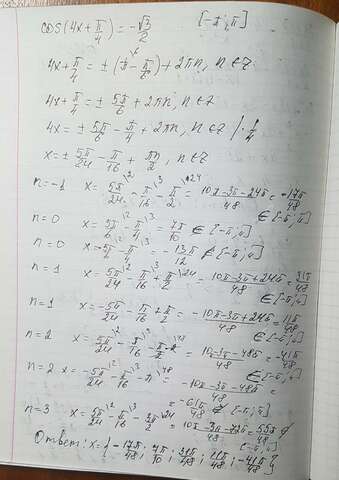 cos(4x+π/4)=-√3/2 [-π;π]
4x+π/4=±(π-π/6)+2πn, n∈Z
4x+π/4=±5π/6+2πn, n∈Z
4x=±5π/6-π/4+2πn, n∈Z /·1/4
x=±5π/24-π/16+πn/2, n∈Z
n=-1 x=5π/24-π/16-π/2=10π-3π-24π/48=-17π/48 ∈[-π;π]
n=0 x=5π/6-π/4=7π/10 ∈[-π;π]
n=0 x=-5π/6-π/4=-13π/12 ∉[-π;π]
n=1 x=5π/24-π/16+π/2=10π-3π+24π/48=31π/48 ∈[-π;π]
n=1 x=-5π/24-π/16+π/2=-10π-3π+24π/48=11π/48 ∈[-π;π]
n=2 x=5π/24-π/16-π=10-3π-48π/48=-41π/48 ∈[-π;π]
n=2 x=-5π/24-π/16-π=-10π-3π-48π/48=
=-61π/48 ∉[-π;π]
n=3 x=5π/24-π/16-3π/2=10π-3π-72π/48
Ответ: x={-17π/48; 7π/10; 31π/48; -41π/48}